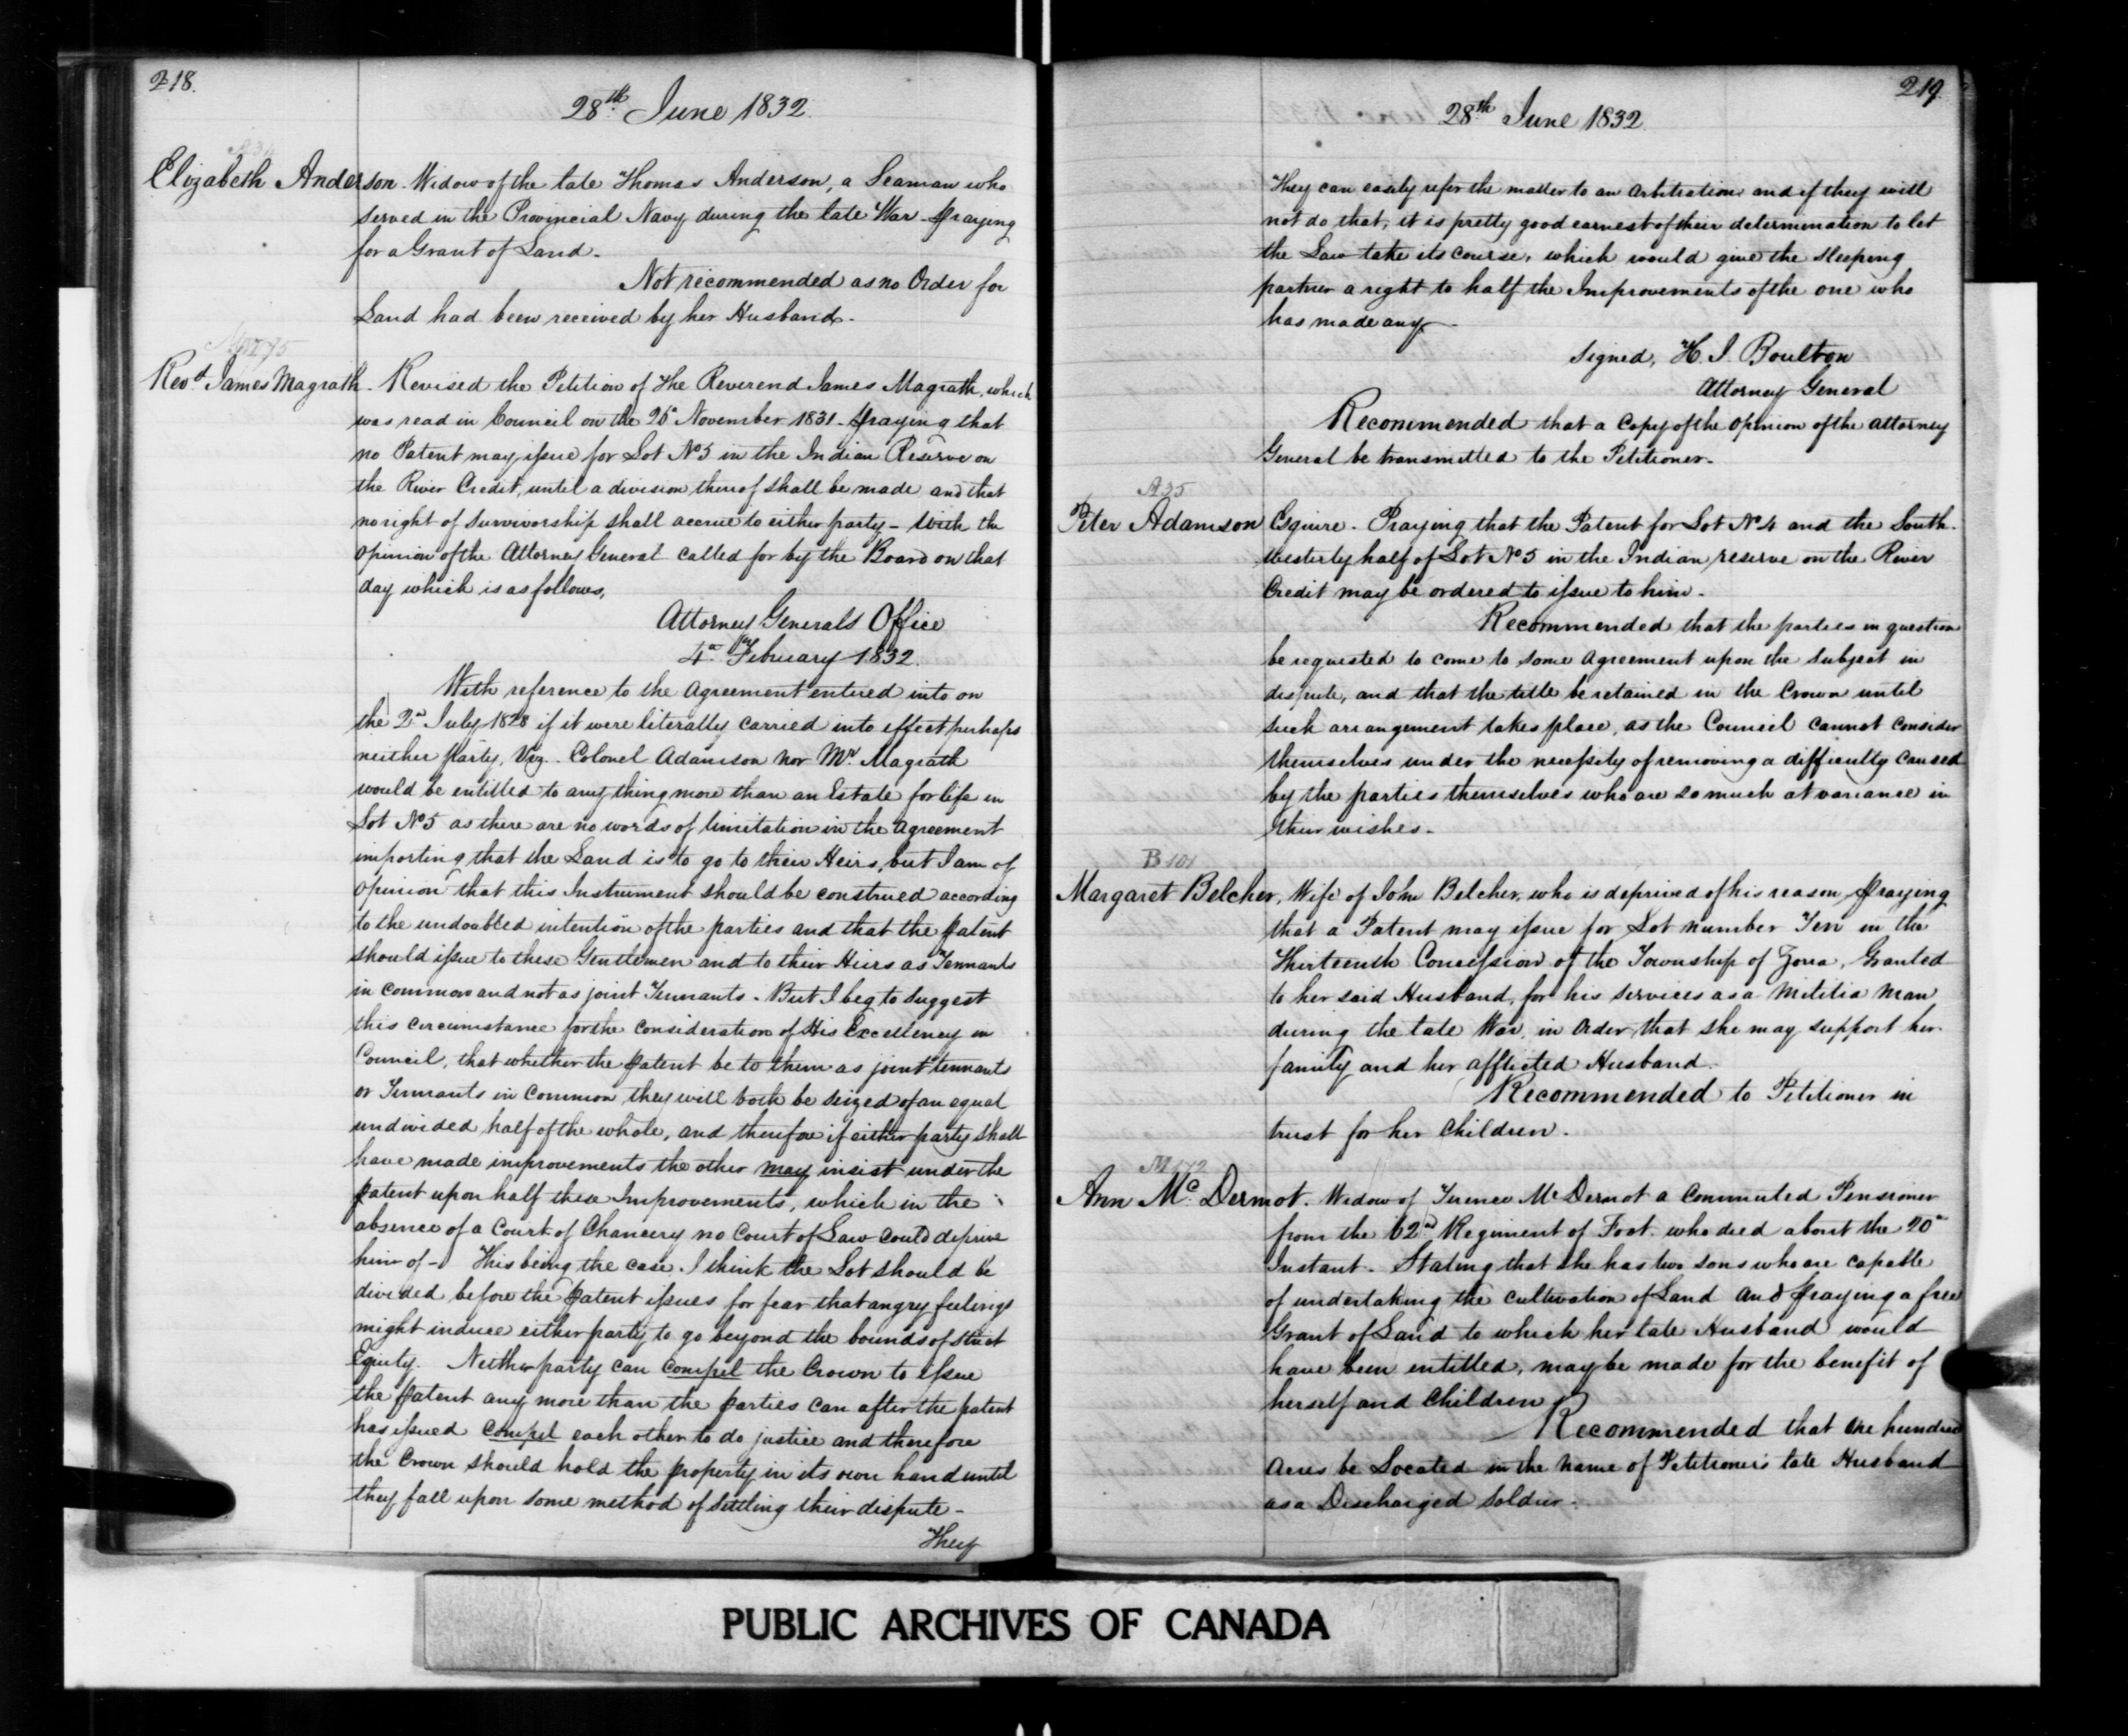 218.
28th June 1832.
Elizabeth Anderson. Widow of the late Thomas Anderson, a Seaman who
served in the Provincial Navy during the late War - praying
for a Grant of Land.
Not recommended as no Order for
Land had been received by her Husband.
Revd. James Magrath. Revised the Petition of the Reverend James Magrath, which
was read in Council on the 26th November 1831 - praying that
no Patent may issue for Lot No 5 in the Indian Reserve on
the River Credit, until a division thereof shall be made and that
no right of survivorship shall accrue to either party - With the
opinion of the Attorney General called for by the Board on that
day which is as follows,
Attorney Generals Office
4th February 1832.
With reference to the agreement entered into on
the 2d July 1828 if it were literally carried into effect perhaps
neither party, Viz. Colonel Adamson nor Mr Magrath
would be entitled to any thing more than an Estate for life in
Lot No 5 as there are no words of limitation in the agreement
importing that the Land is to go to their Heirs, but I am of
opinion that this Instrument should be construed according
to the undoubted intention of the parties and that the patent
should issue to these Gentlemen and to their Heirs as Tennants
in common and not as joint Tennants. But I beg to suggest
this circumstance for the consideration of His Excellency in
Council, that whether the patent be to them as joint tennants
or Tennants in common they will both be seized of an equal
undivided half of the whole, and therefore if either party shall
have made improvements the other may insist under the
patent upon half these Improvements, which in the
absence of a Court of Chancery no Court of Law could deprive
him of - This being the case I think the Lot should be
divided before the patent issues for fear that angry feelings
might induce either party to go beyond the bounds of strict
Equity. Neither party can compel the Crown to issue
the patent any more than the parties can after the patent
has issued compel each other to do justice and therefore
the Crown should hold the property in its own hand until
they fall upon some method of settling their dispute -
They
219.
28th June 1832
They can easily refer the matter to an arbitration and if they will
not do that, it is pretty good earnest of their determination to let
the Law take its course, which would give the sleeping
partner a right to half the Improvements of the one who
has made any -
Signed, H. J. Boulton
Attorney General
Recommended that a Copy of the opinion of the attorney
General be transmitted to the Petitioner.
A 35
Peter Adamson Esquire. Praying that the Patent for Lot No 4 and the South
westerly half of Lot No 5 in the Indian reserve on the River
Credit may be ordered to issue to him.
Recommended that the parties in question
be requested to come to some agreement upon the subject in
dispute, and that the title be retained in the Crown until
such arrangement takes place, as the Council cannot consider
themselves under the necessity of removing a difficulty caused
by the parties themselves who are so much at variance in
their wishes.
B 101
Margaret Belcher, Wife of John Belcher, who is deprived of his reason, praying
that a Patent may issue for Lot number Ten in the
Thirteenth Concession of the Township of Zorra, Granted
to her said Husband, for his services as a Militia Man
during the late War, in order that she may support her
family and her afflicted Husband.
Recommended to Petitioner in
trust for her Children.
M 172
Ann Mc Dermot. Widow of Terence McDermot a Commuted Pensioner
from the 62d Regiment of Foot who died about the 20th
Instant. Stating that she has two sons who are capable
of undertaking the cultivation of Land and praying a free
Grant of Land to which her late Husband would
have been entitled, may be made for the benefit of
herself and Children
Recommended that one hundred
acres be Located in the name of Petitioner's late Husband
as a Discharged Soldier.
PUBLIC ARCHIVES OF CANADA